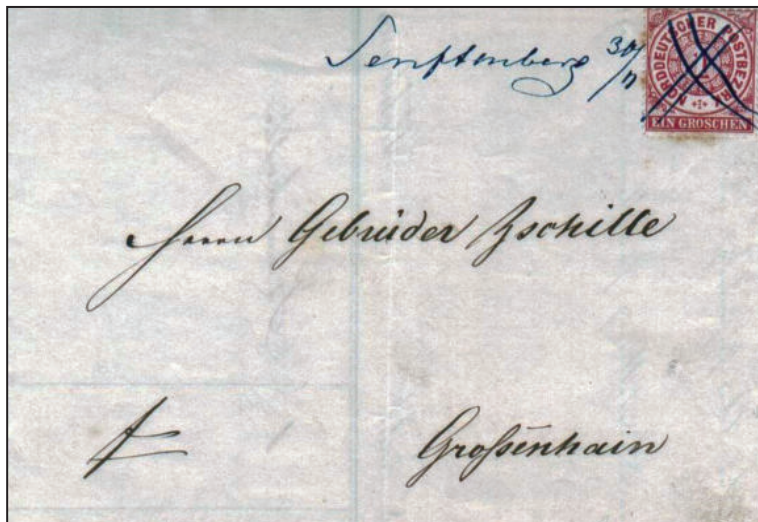 Senftenberg 30/11
NORDDEUTSCHER POSTBEZIRK
1
EIN GROSCHEN
Herrn Gebrüder Zschille
Großenhain